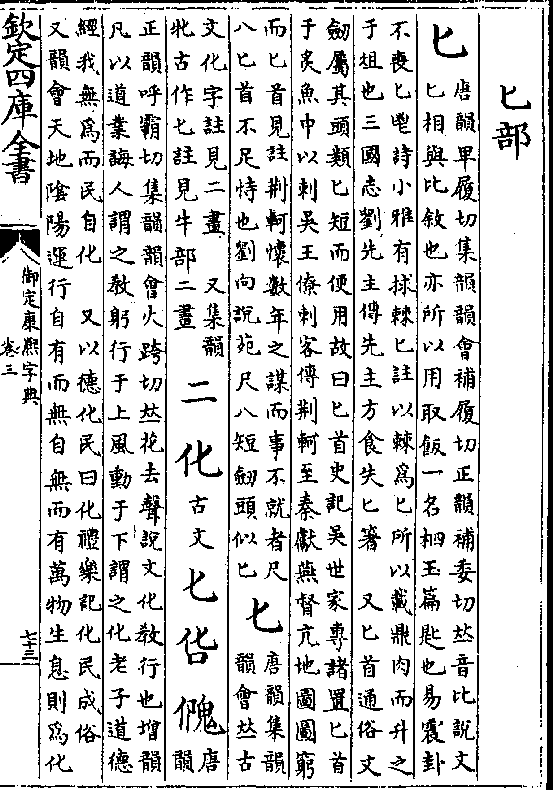 匕部
匕
唐韻卑履切集韻韻會補履切正韻補委切𠀤音比說文
匕相與比敘也亦所以用取飯一名柶玉篇匙也易震卦
不喪匕鬯詩小雅有捄棘匕註以棘爲匕所以載鼎肉而升之
于俎也三國志劉先主傳先主方食失匕箸 又匕首通俗文
劒屬其頭類匕短而便用故曰匕首史記吳世家專諸置匕首
于炙魚中以刺吳王僚刺客傳荆軻至秦獻燕督亢地圖圖窮
而匕首見註荆軻懷數年之謀而事不就者尺
八匕首不足恃也劉向說苑尺八短劒頭似匕
𠤎
唐韻集韻
韻會𠀤古
文化字註見二畫 又集韻
牝古作𠤎註見牛部二畫
二 化 古文 𠤎
唐
韻
正韻呼霸切集韻韻會火跨切𠀤花去聲說文化敎行也增韻
凡以道業誨人謂之敎躬行于上風動于下謂之化老子道德
經我無爲而民自化 又以德化民曰化禮樂記化民成俗
又韻會天地隂陽運行自有而無自無而有萬物生息則爲化
欽定四庫全書
御定康熙字典
卷三
七十三